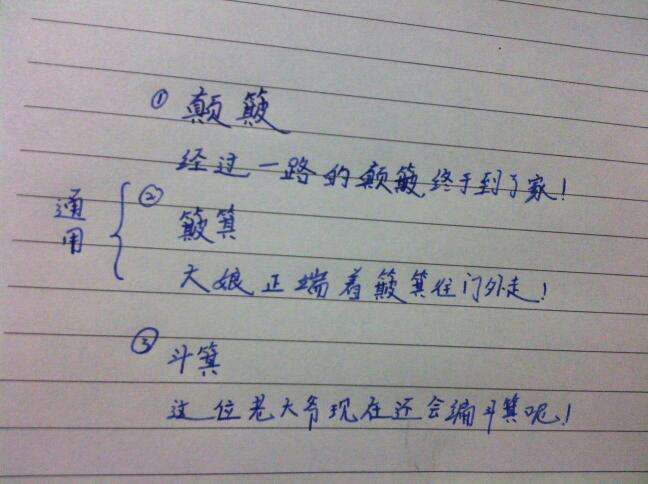 ① 颠簸
经过一路的颠簸,终于到了家!
通用
② 簸箕
大娘正端着簸箕往门外走!
③ 斗箕
这位老大爷现在还会编斗箕呢!